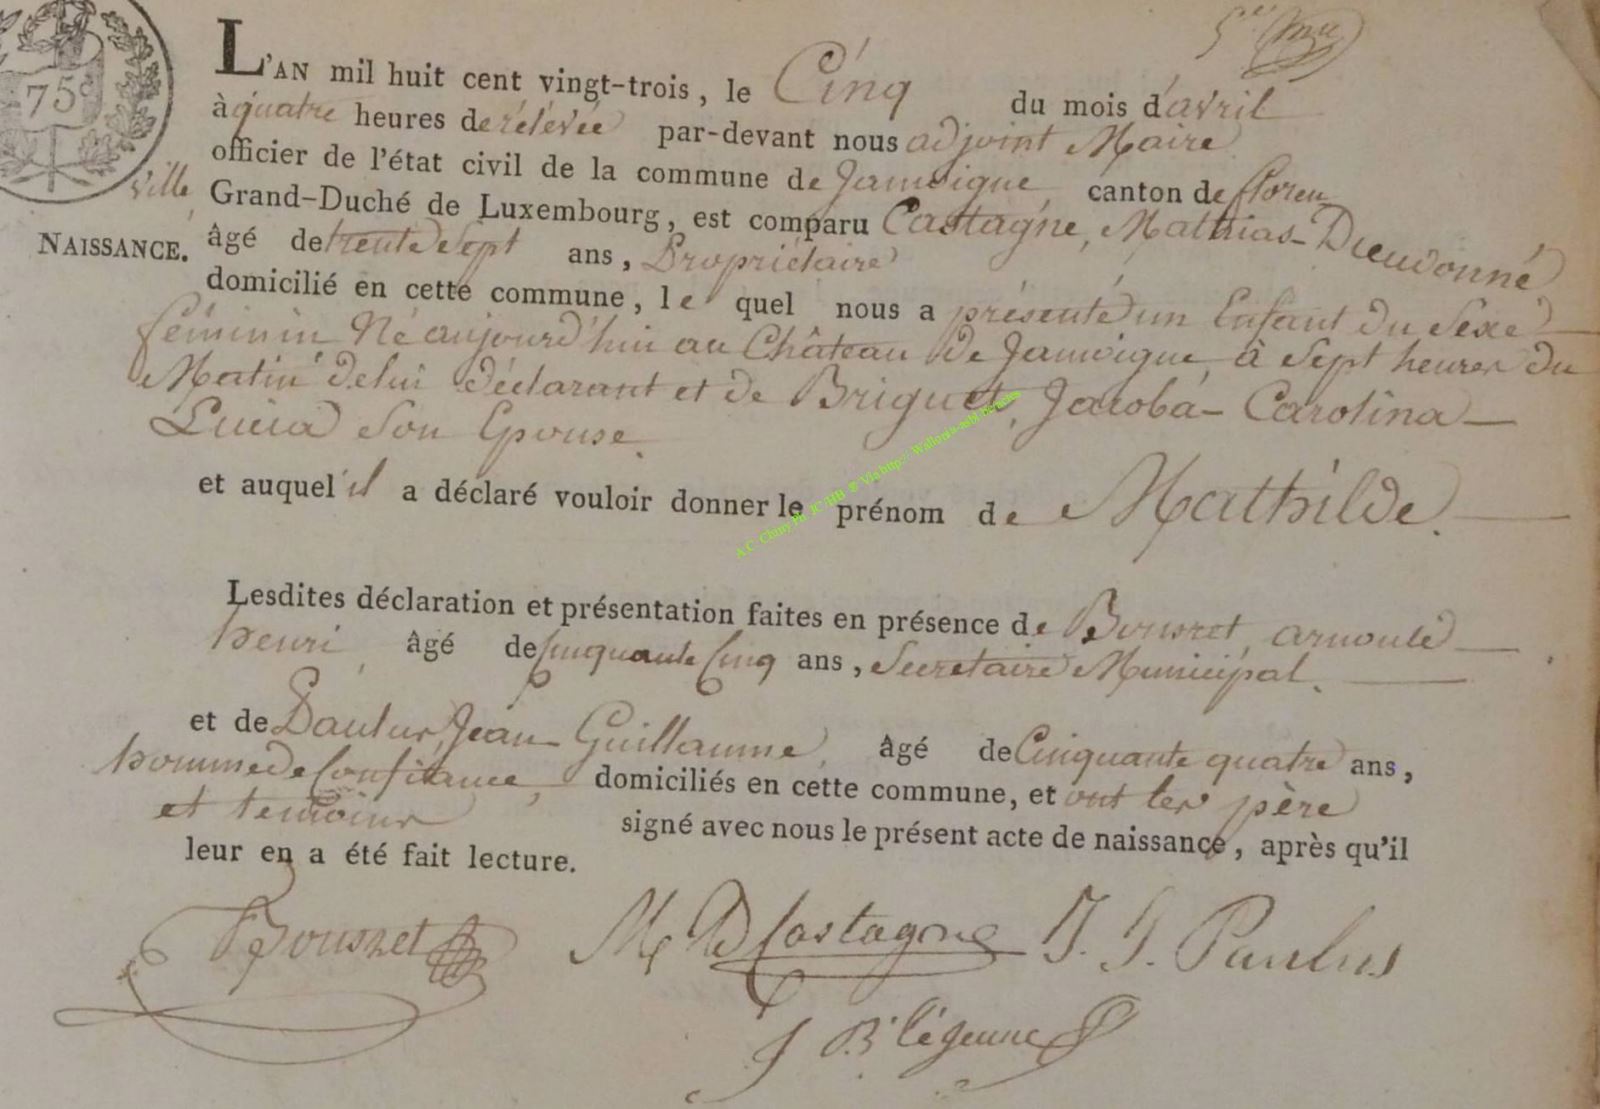 75c
L'AN mil huit cent vingt-trois, le Cinq du mois d'avril
à quatre heures de rélévée par-devant nous adjoint Maire
officier de l'état civil de la commune de Jamoigne, canton de floren
ville,
Grand-Duché de Luxembourg, est comparu Castagne, Mathias-Dieudonné
NAISSANCE.
âgé de trente Sept ans, Propriétaire
domicilié en cette commune, le quel nous a présenté un Enfant du Sexe
féminin Né aujourd'hui au Château de Jamoigne, à Sept heures du
Matin de lui déclarant et de Briguet, Jacoba-Carolina-
Lucia Son Epouse.
et auquel il a déclaré vouloir donner le prénom de Mathilde.
A.C Chiny Ph JC/HB © Via http:// Wallonia-asbl Heracles
Lesdites déclaration et présentation faites en présence de Bousret, arnould
henri, âgé de Cinquante Cinq ans, Secretaire Municipal.
et de Paulus, Jean-Guillaume, âgé de Cinquante quatre ans,
homme de Confiance, domiciliés en cette commune, et ont les père
et temoins signé avec nous le présent acte de naissance, après qu'il
leur en a été fait lecture.
Bousret M D Castagne J. G. Paulus
J B Léjeune